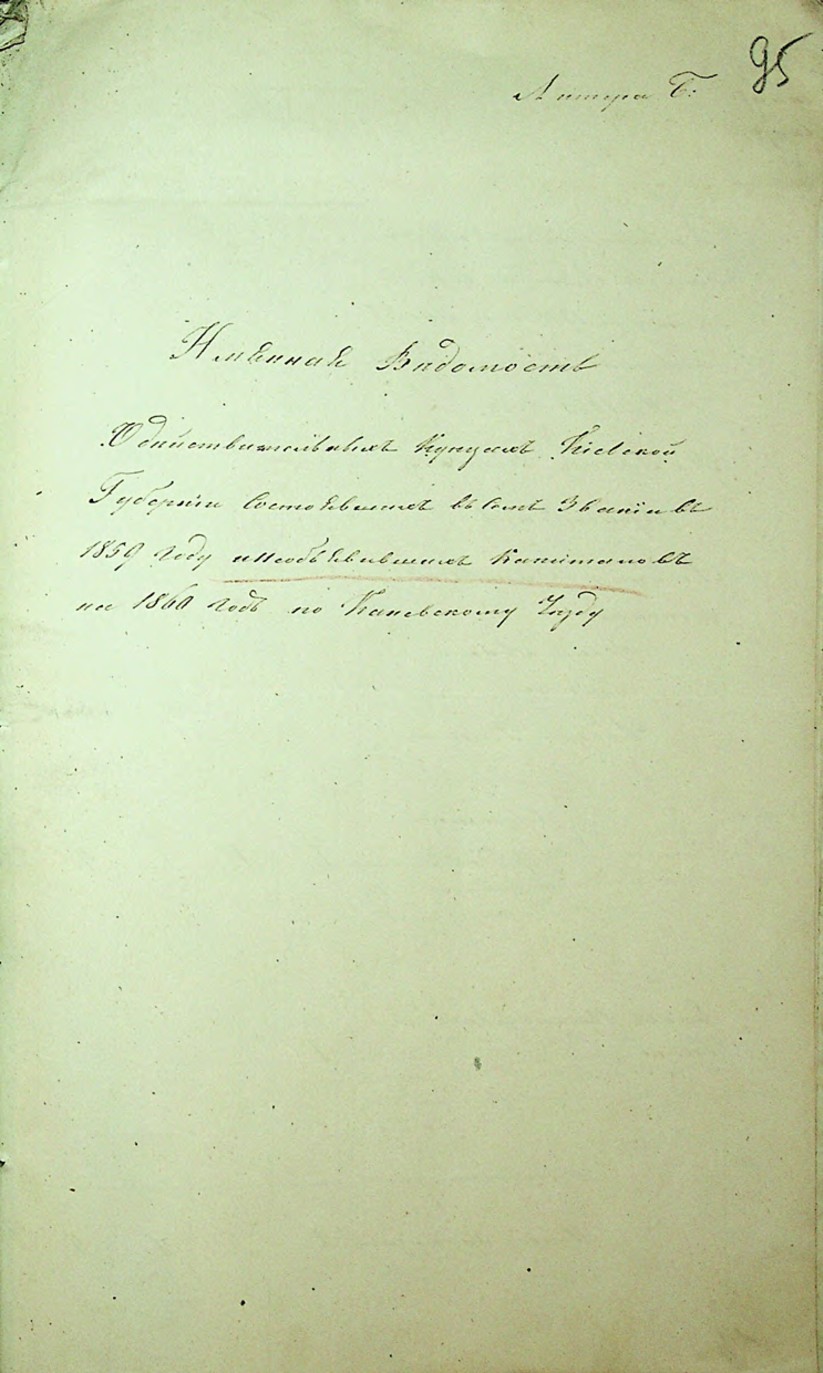 95
Литера Б:
Именная Видомость
О дийствительныхъ Купцахъ Кіевской
Губерніи Состоявшихъ въ семъ Званіи въ
1859 Году и необъявившихъ Капиталовъ
на 1860 Годъ по Каневскому Уезду